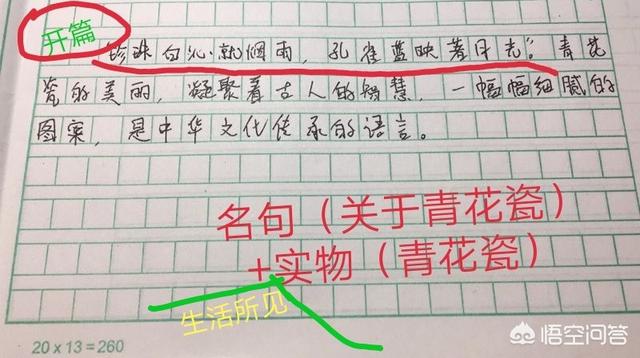 开篇
珍珠白沁就烟雨，孔雀蓝映著月光"。青花
瓷的美丽，凝聚着古人的智慧，一幅幅细腻的
图案，是中华文化传承的语言。
名句（关于青花瓷）
+实物（青花瓷）
生活所见
20×13=260
悟空问答